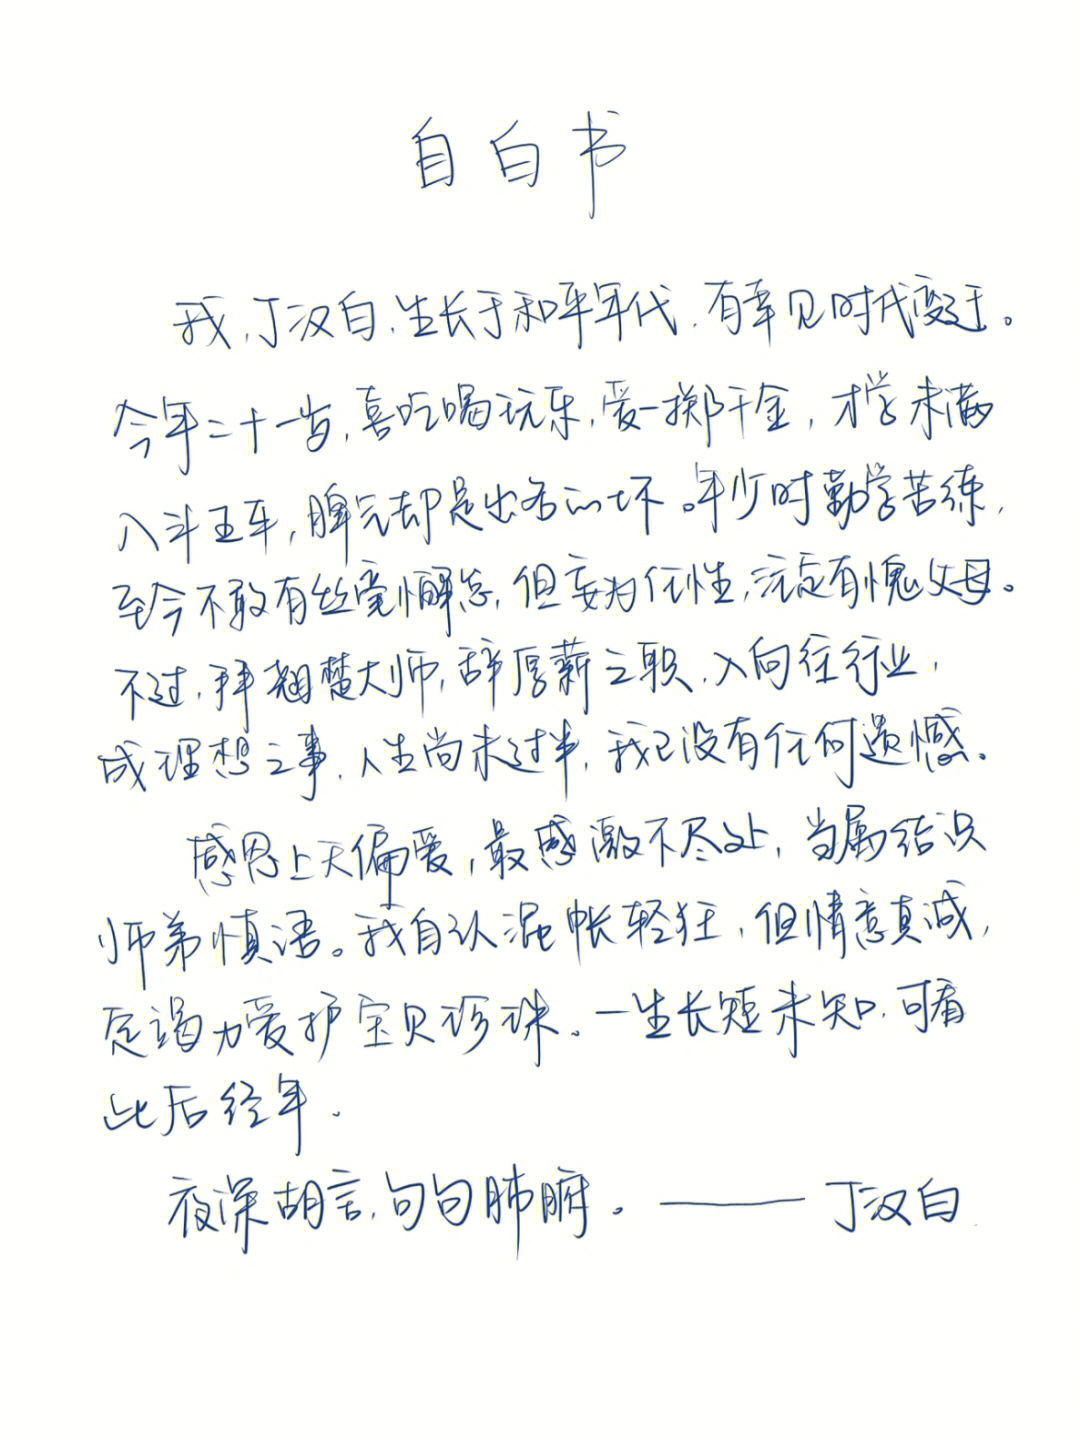 自白书
我,丁汉白,生长于和平年代,有幸见时代变迁。
今年二十一岁,喜吃喝玩乐,爱一掷千金,才学未满
八斗五车,脾气却是出名的坏。年少时勤学苦练,
至今不敢有丝毫懈怠,但妄为任性,注定有愧父母。
不过,拜翘楚大师,辞厚薪之职,入向往行业,
成理想之事,人生尚未过半,我已没有任何遗憾。
感恩上天偏爱,最感激不尽处,当属结识
师弟慎语。我自认混帐轻狂,但情意真诚,
定竭力爱护宝贝珍珠。一生长短未知,可看
此后经年.
夜深胡言,句句肺腑。——丁汉白